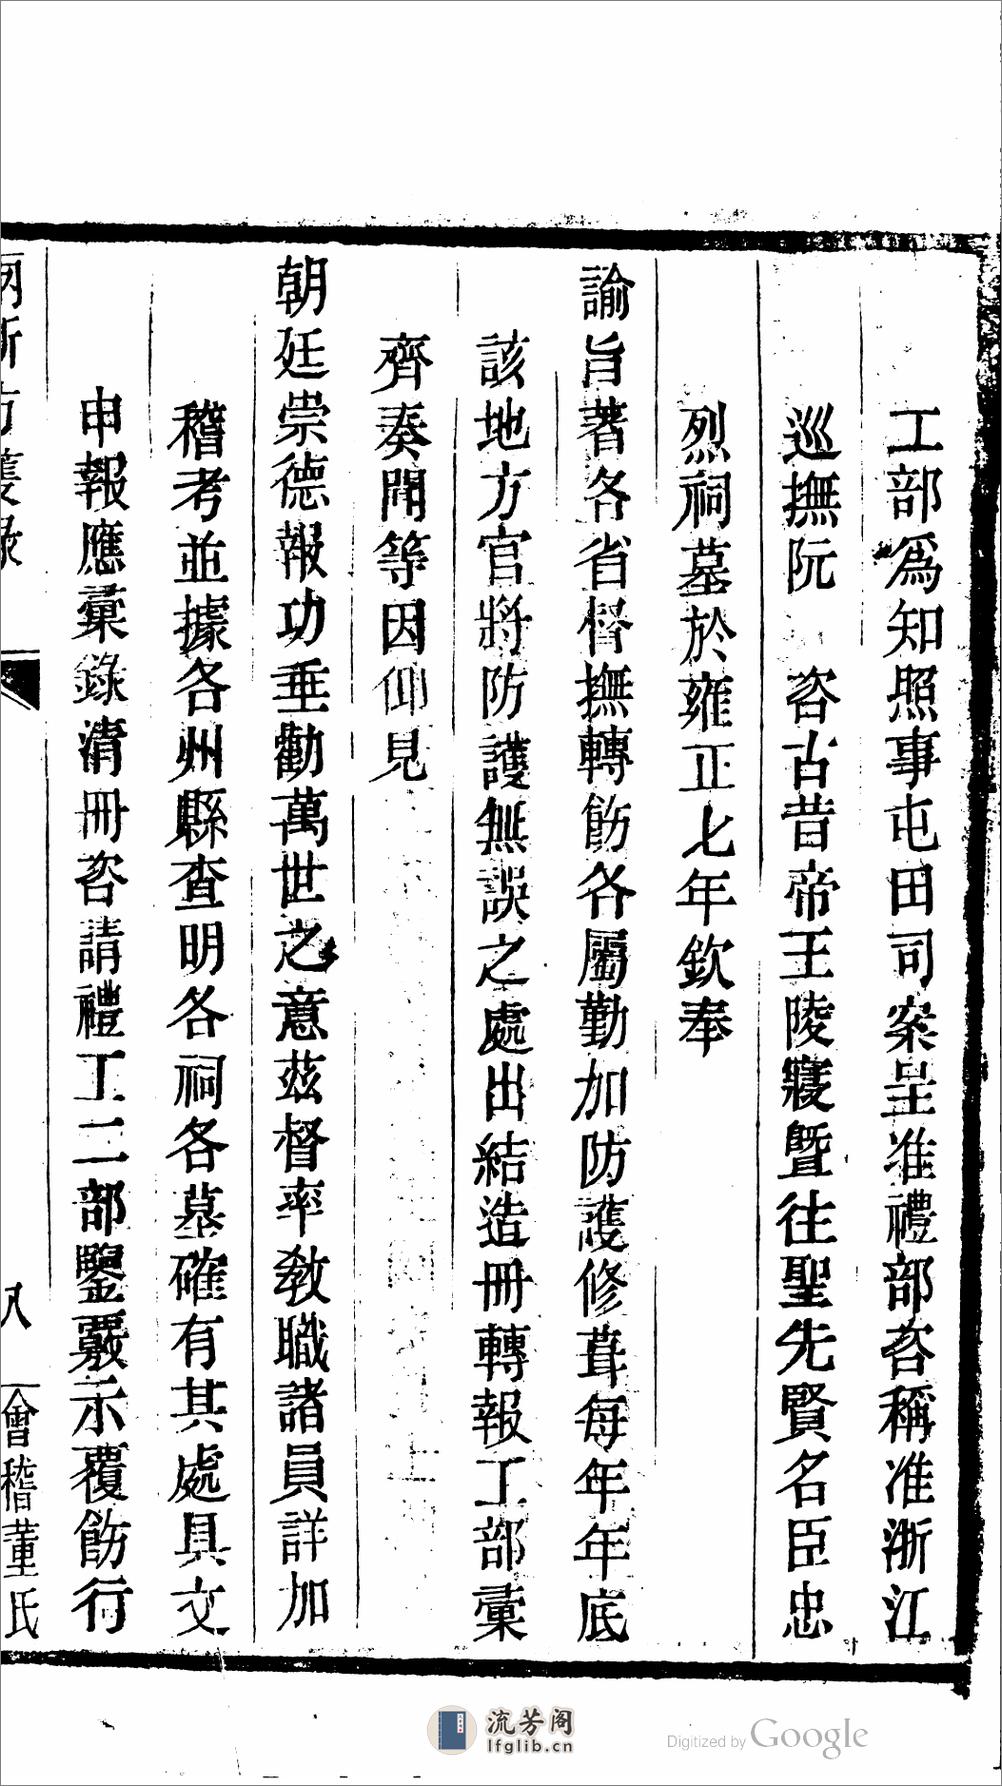 工部爲知照事屯田司案呈准禮部咨稱准浙江
巡撫阮　咨古昔帝王陵寢暨往聖先賢名臣忠
烈祠墓於雍正七年欽奉
諭旨著各省督撫轉飭各屬勤加防護修葺每年年底
該地方官將防護無誤之處出結造冊轉報工部彙
齊奏聞等因仰見
朝廷崇德報功垂勸萬世之意茲督率敎職諸員詳加
稽考並據各州縣查明各祠各墓確有其處具文
申報應彙錄清冊咨請禮工二部鑒覈示覆飭行
兩浙防護錄
八
會稽董氏
流芳阁
lfglib.cn
Digitized by Google